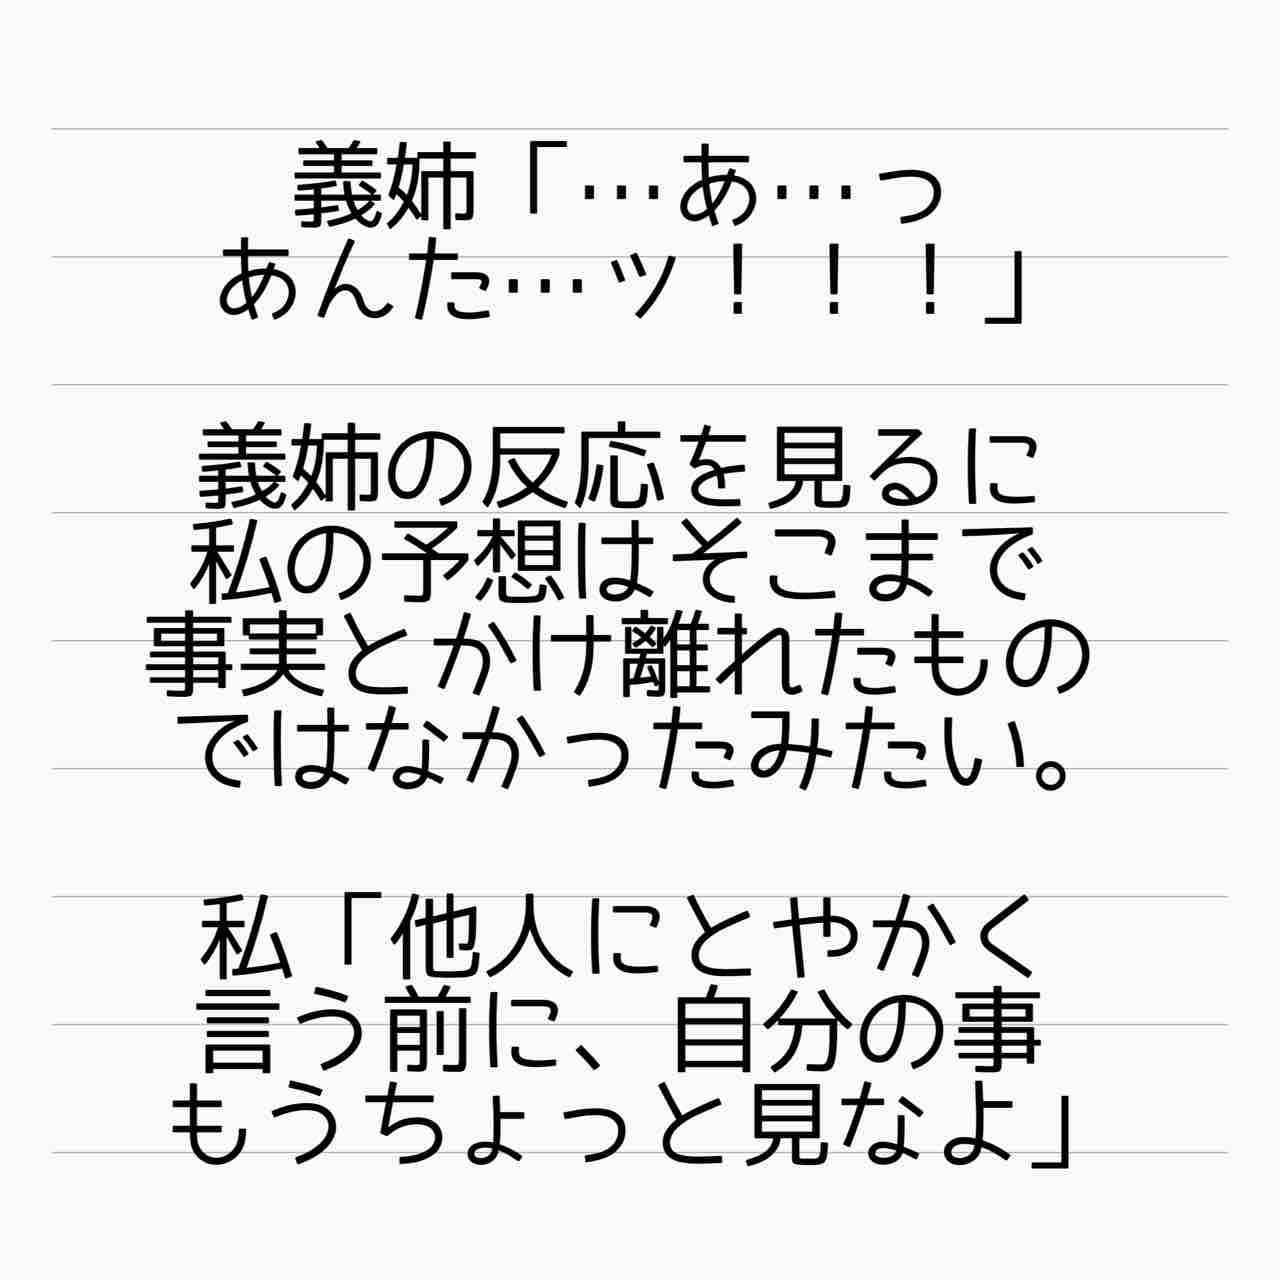 義姉「…あ…っ
あんた…ッ！！！」
義姉の反応を見るに
私の予想はそこまで
事実とかけ離れたもの
ではなかったみたい。
私「他人にとやかく
言う前に、自分の事
もうちょっと見なよ」